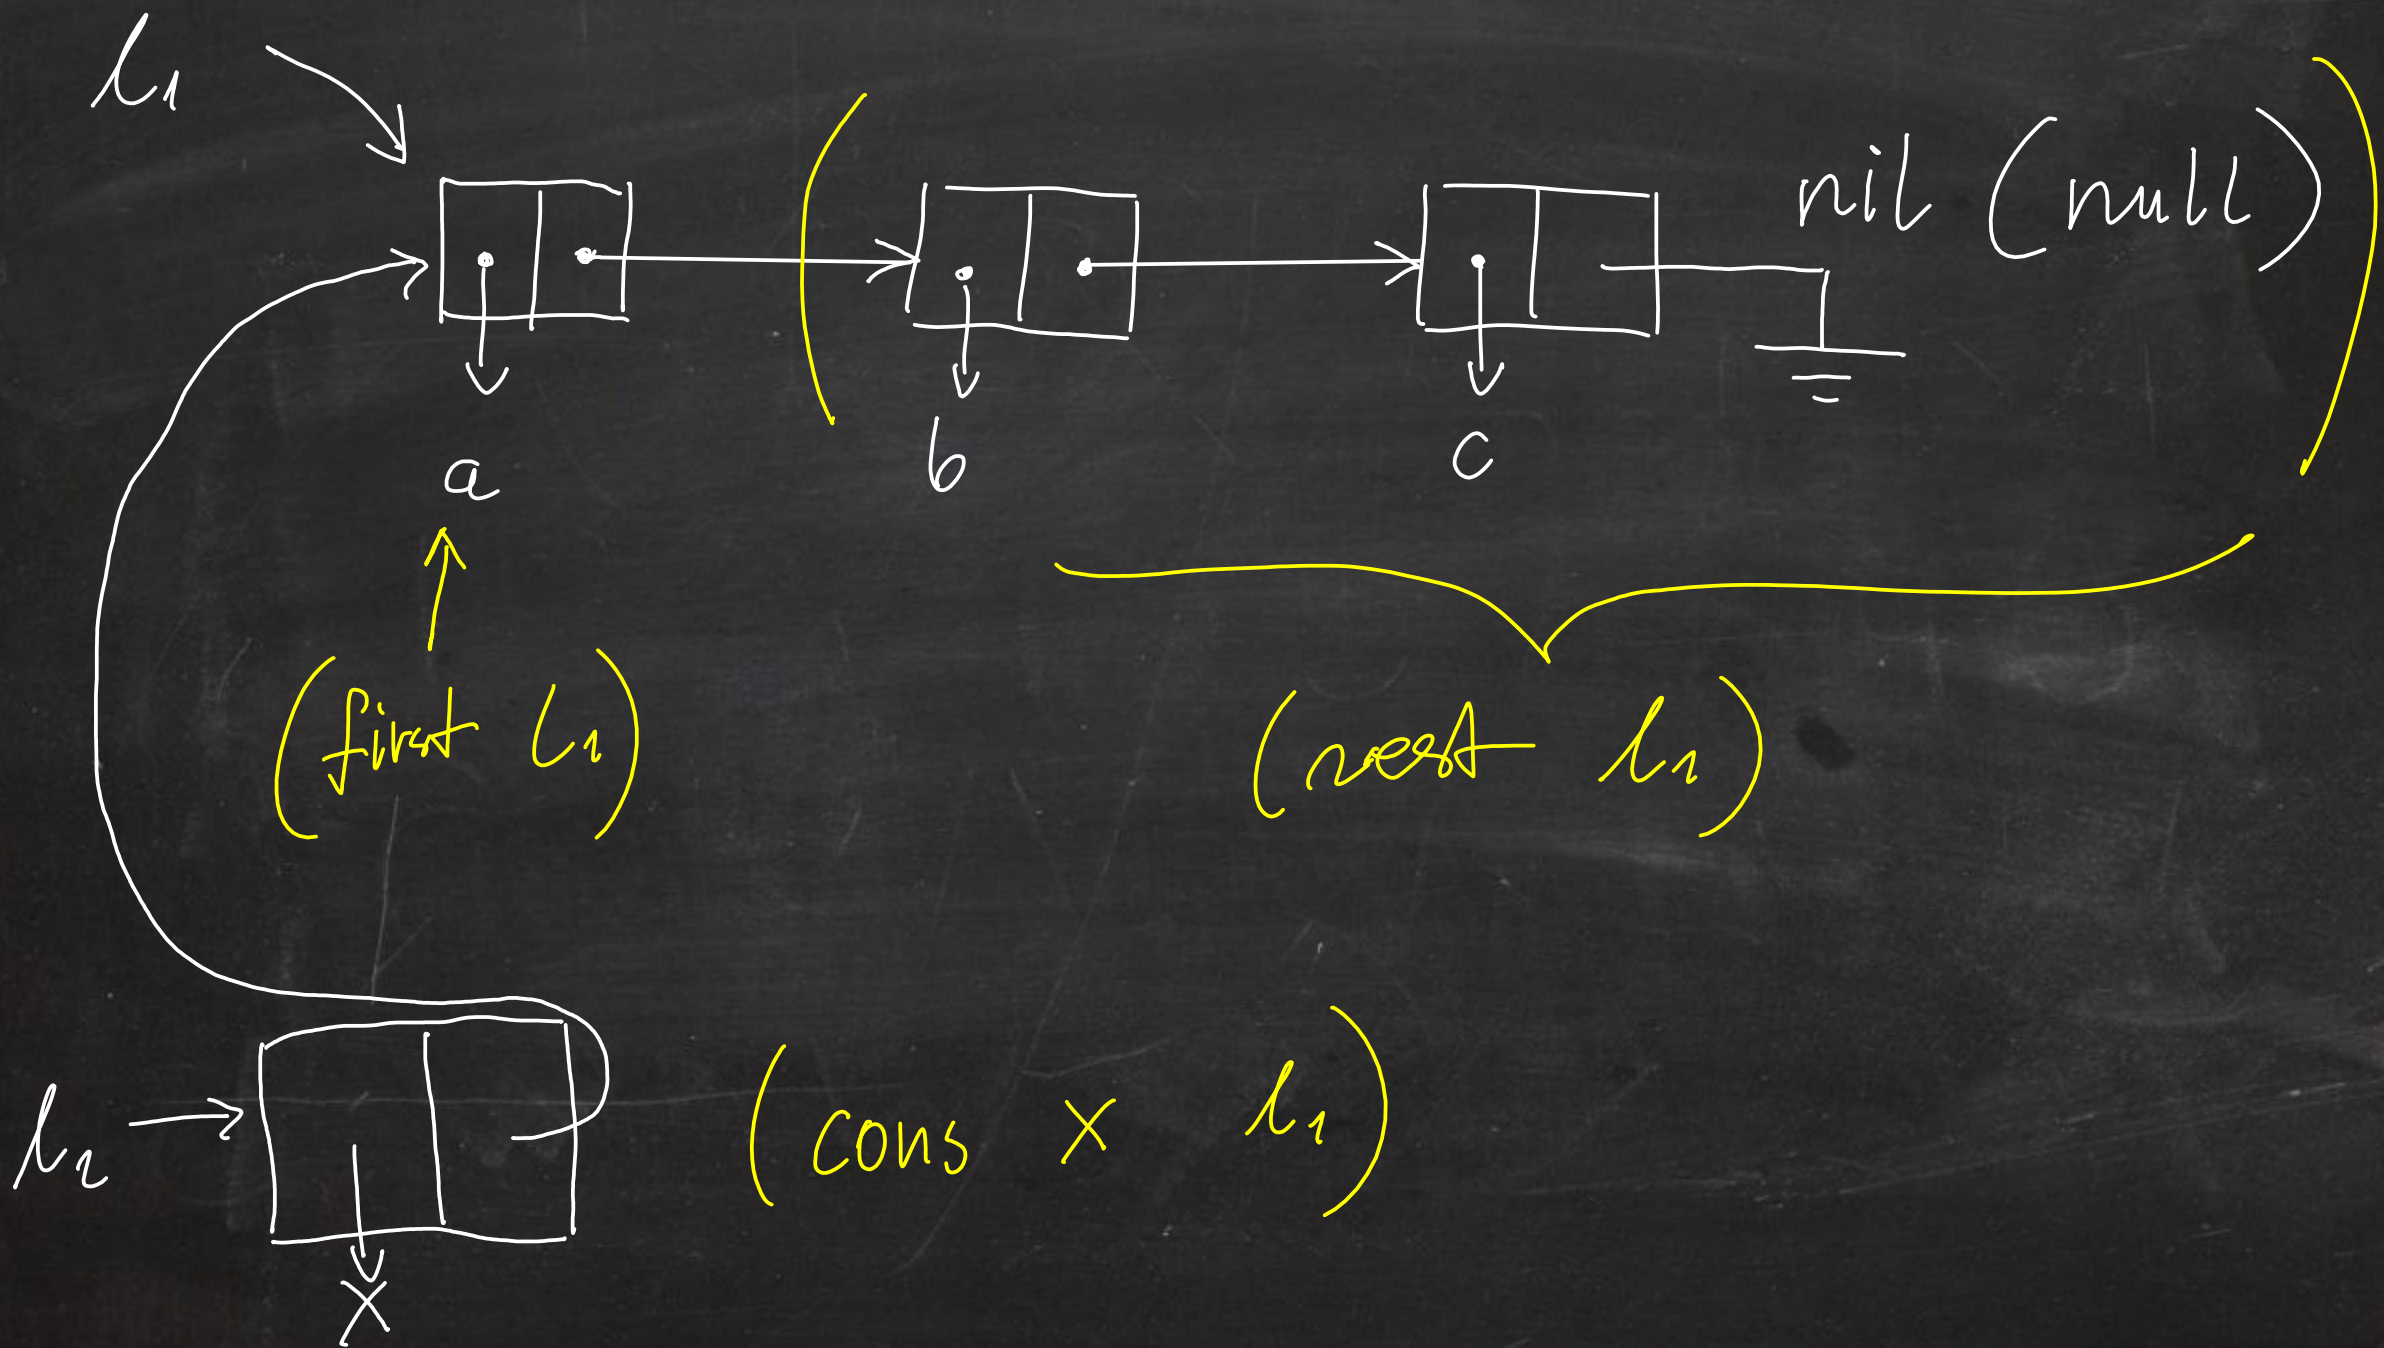 l1
nil (null)
a
b
c
(first l1)
(rest l1)
l2
(cons x l1)
x